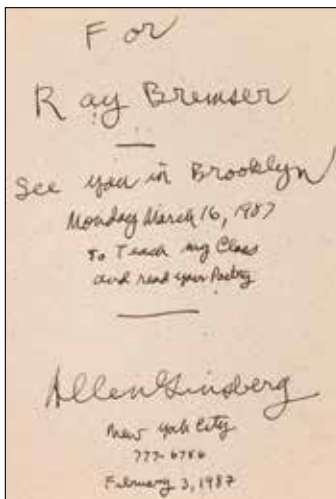 For
Ray Bremser
See you in Brooklyn
Monday March 16, 1987
to Teach my Class
and read your Poetry
Allen Ginsberg
New York City
777-6786
February 3, 1987